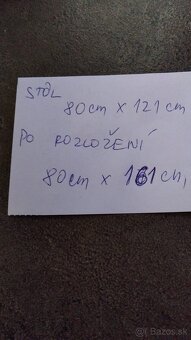 STÔL
80cm X 121 cm
PO ROZLOŽENÍ
80cm X 161 cm
© Bazos.sk